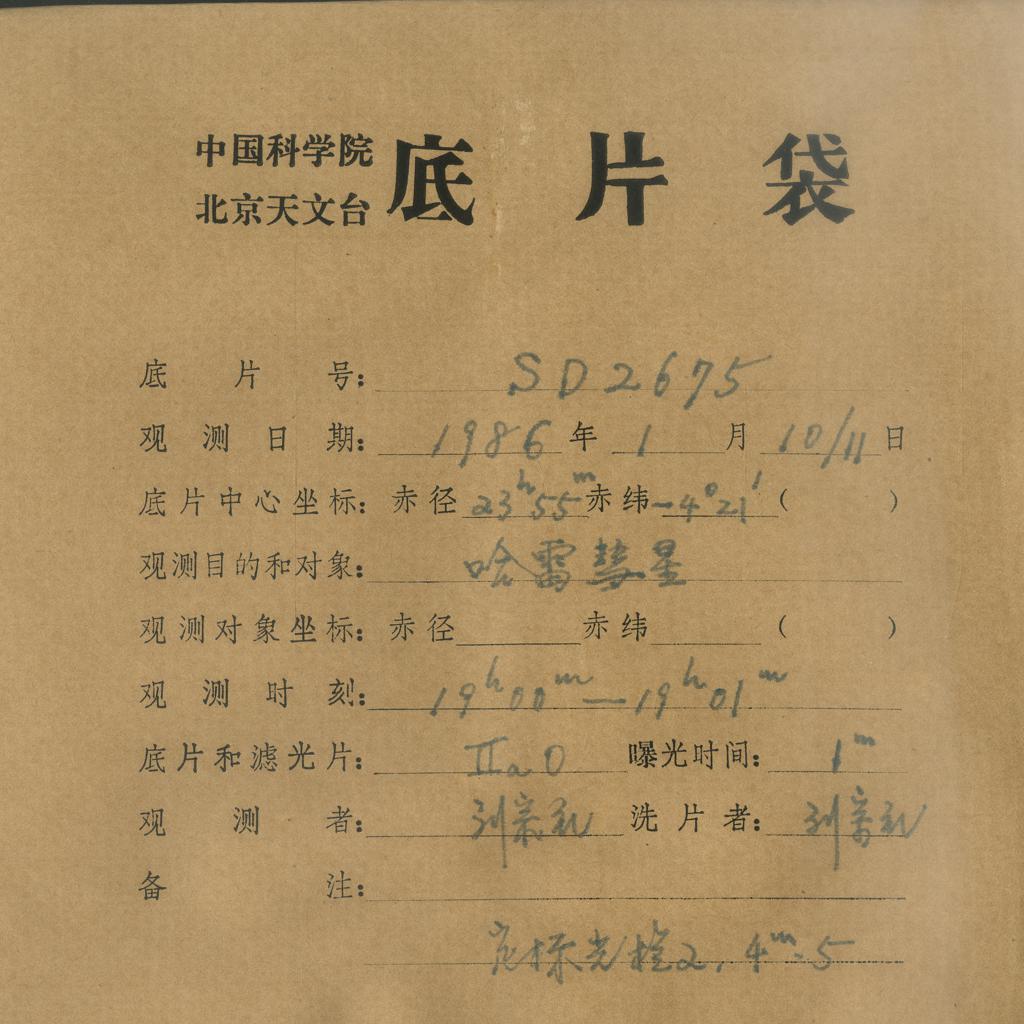 中国科学院
北京天文台 底片袋
底片号: SD2675
观测日期: 1986年1月10/11日
底片中心坐标: 赤径23h55m赤纬-4°21′( )
观测目的和对象: 哈雷彗星
观测对象坐标: 赤径 赤纬 ( )
观测时刻: 19h00m—19h01m
底片和滤光片: IIaO 曝光时间: 1m
观测者: 刘宗礼 洗片者: 刘宗礼
备注:
定标光楔2, 4m.5